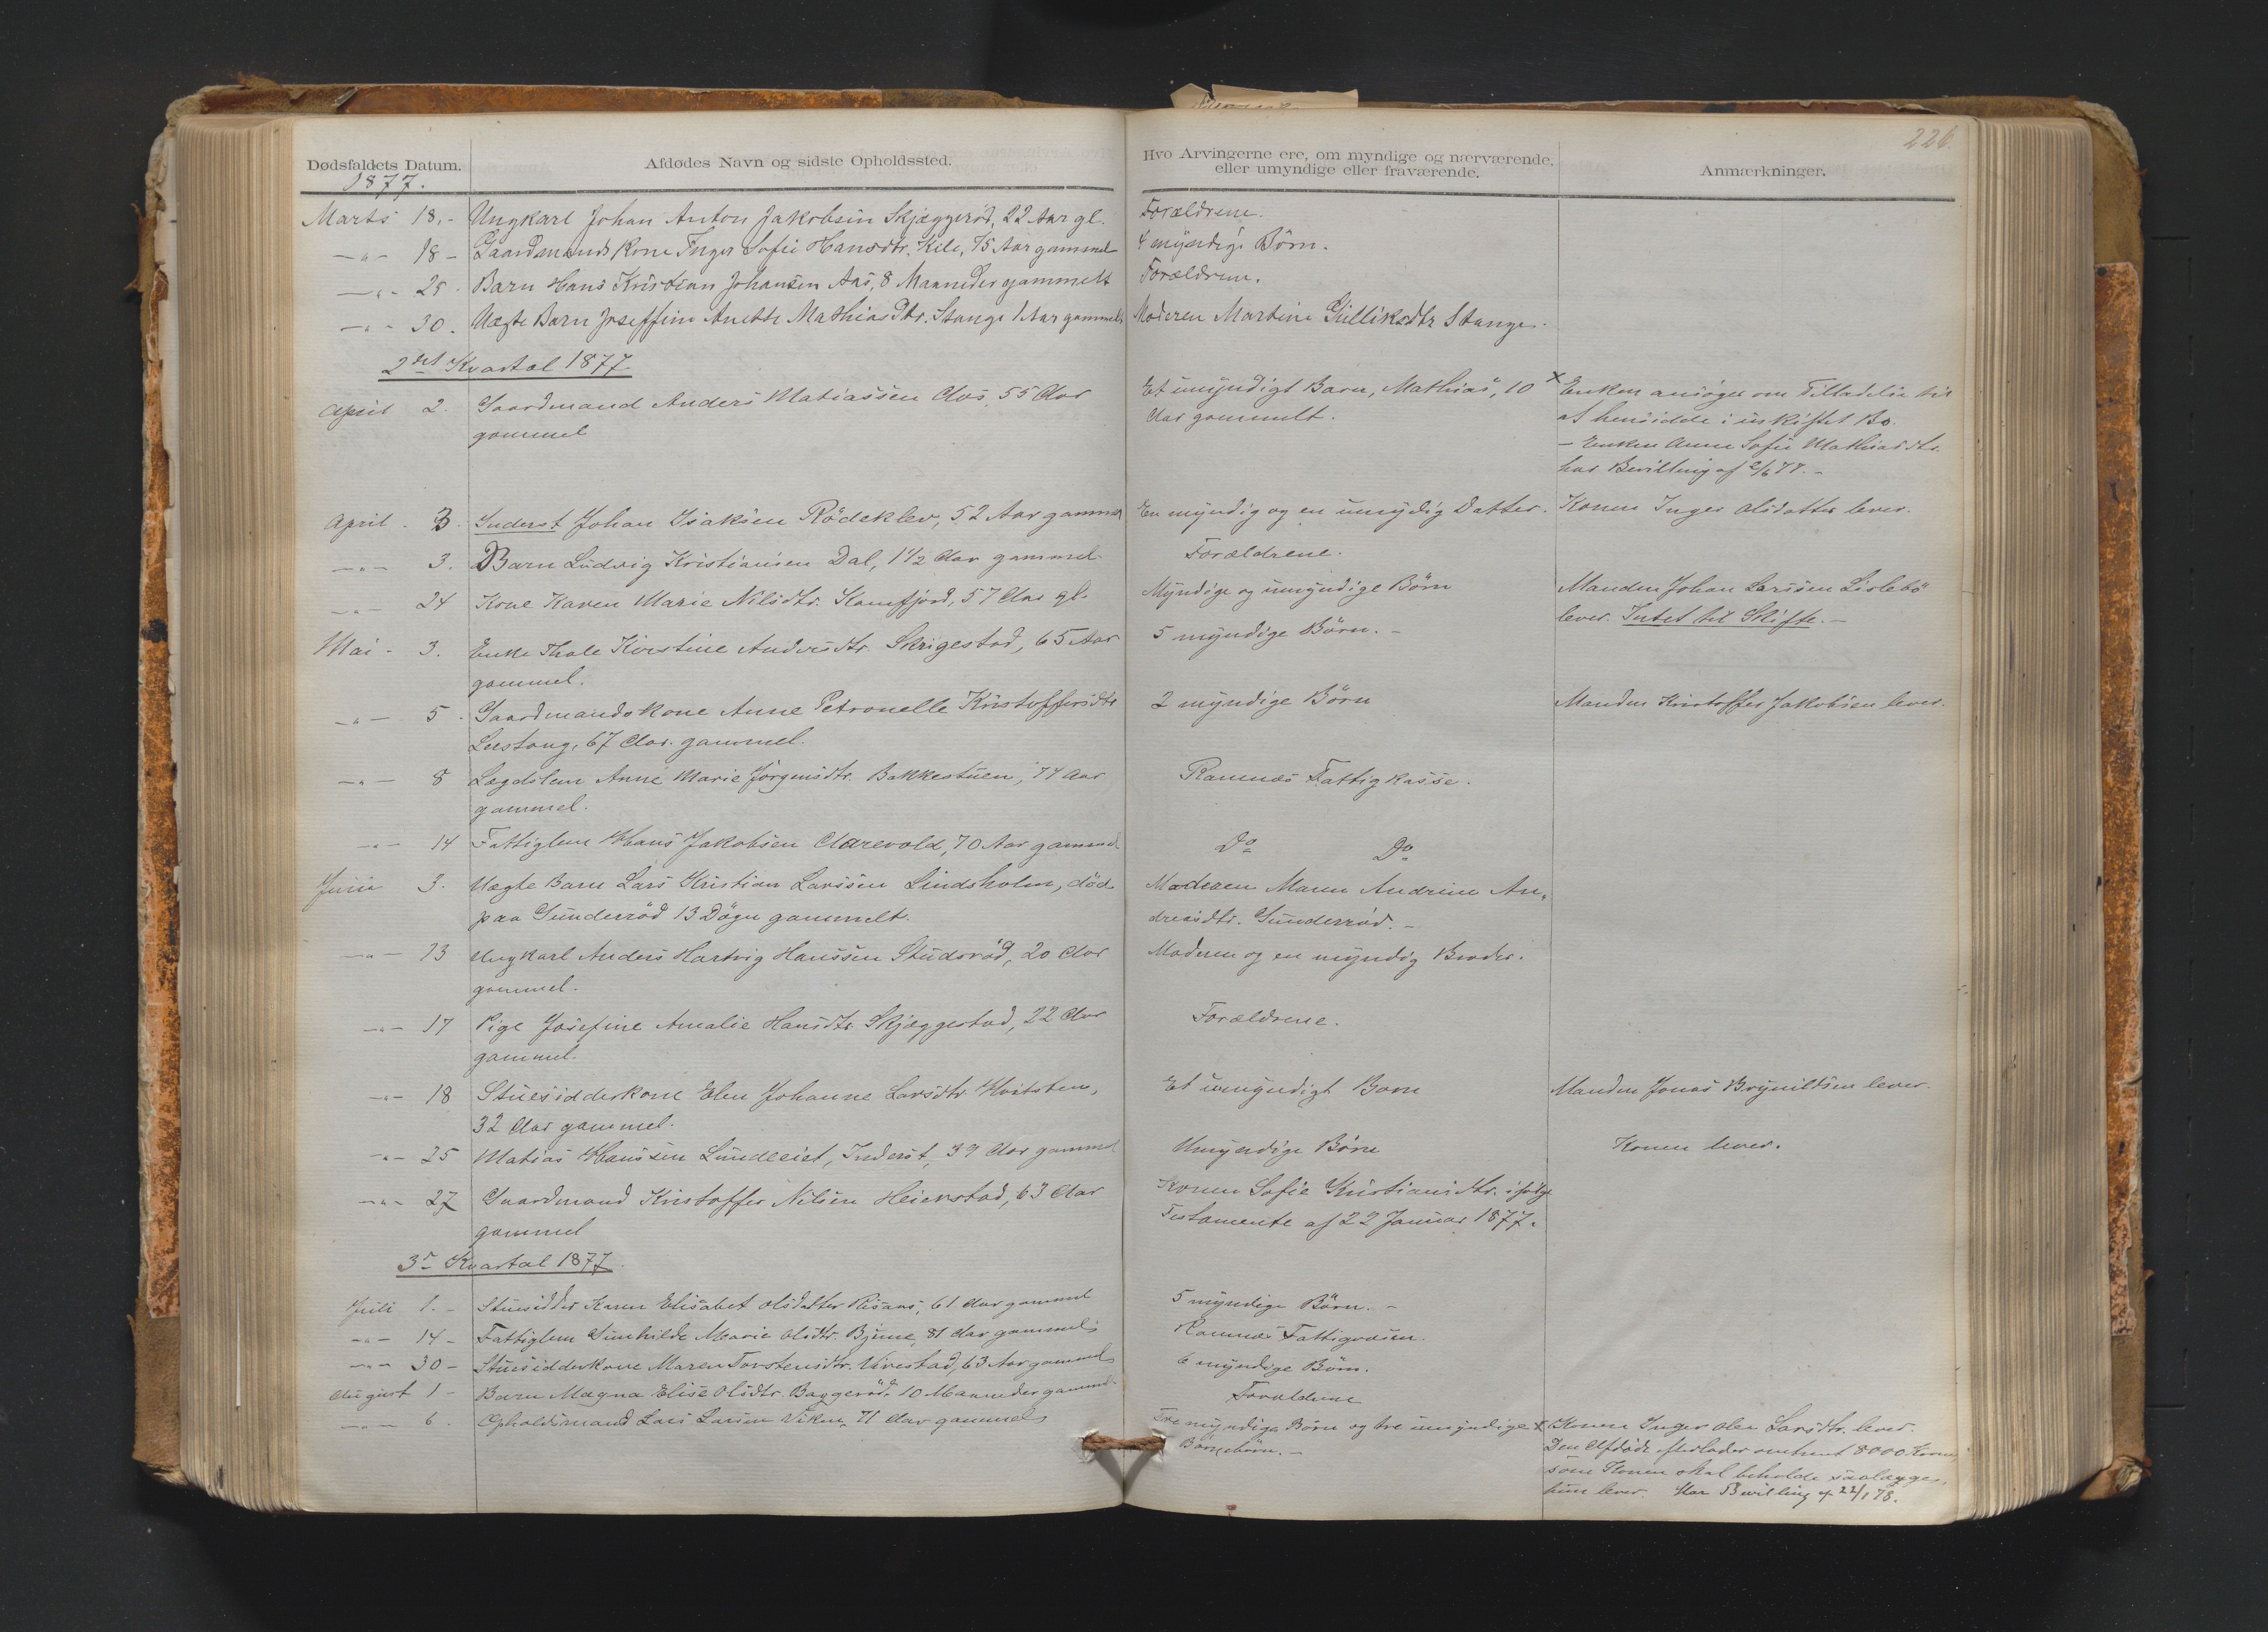 226.
Dødsfaldets Datum. Afdødes Navn og sidste Opholdssted. Hvo Arvingerne ere, om myndige og nærværende, eller umyndige eller fraværende. Anmærkninger.
1877.
Marts 18. - Ungkarl Johan Anton Jakobsen Skjæggerød, 22 Aar gl. Forældrene.
-"- 18 - Gaardmands Kone Inger Sofie Hansdtr. Kile, 75 Aar gammel 4 myndige Börn.
-"- 25. Barn Hans Kristian Johansen Aas, 8 Maaneder gammelt Forældrene.
-"- 30. Uægte Barn Joseffine Anette Mathiasdtr. Stange 1 Aar gammelt Moderen Martine Gulliksdtr Stange.
2det Kvartal 1877
April 2. Gaardmand Anders Matiassen Aas, 55 Aar Et umyndigt Barn, Mathias, 10 x Enken ansöger om Tilladelse til
gammel Aar gammelt. at hensidde i uskiftet Bo.
- Enken Anne Sofie Mathiasdtr.
har Bevilling af 2/6 77. -
April. 3. Inderst Johan Isaksen Rödeklev, 52 Aar gammel En myndig og en umydig Datter. Konen Inger Olsdatter lever.
-"- 3. Barn Ludvig Kristiansen Dal, 1 1/2 Aar gammel. Forældrene.
-"- 24 Kone Karen Marie Nilsdtr. Kamfjord, 57 Aar gl. Myndige og umyndige Börn Manden Johan Larssen Lislebö
lever. Intet til Skifte. -
Mai - 3. Enke Thale Kirstine Andersdtr. Skrigestad, 65 Aar 5 myndige Börn. -
gammel.
-"- 5. Gaardmandskone Anne Petronelle Kristoffersdtr 2 myndige Börn Manden Kristoffer Jakobsen lever.
Lerstang, 67 Aar. gammel.
-"- 8 Lægdslem Anne Marie Jörgensdtr. Bakkestuen, 74 Aar Ramnæs Fattigkasse.
gammel.
-"- 14 Fattiglem Hans Jakobsen Aarevold, 70 Aar gammel Do Do
Juni 3. Uægte Barn Lars Kristian Larssen Lindsholm, död Moderen Maren Andrine An-
paa Sunderröd 13 Dögn gammelt. dreasdtr. Sunderröd. -
-"- 13 Ungkarl Anders Hartvig Hanssen Studsröd, 20 Aar Moderen og en myndig Broder.
gammel.
-"- 17 Pige Josefine Amalie Hansdtr. Skjæggestad, 22 Aar Forældrene.
gammel.
-"- 18 Stuesidderkone Elen Johanne Larsdtr. Hvitsten, Et umyndigt Barn Manden Jonas Brynildsen lever.
32 Aar gammel.
-"- 25 Matias Hanssen Lundeeiet, Inderst, 39 Aar gammel Umyndige Börn Konen lever.
-"- 27 Gaardmand Kristoffer Nilsen Heierstad, 63 Aar Konen Sofie Kristiansdtr. ifölge
gammel Testamente af 22 Januar 1877.
3die Kvartal 1877.
Juli 1. - Stuesidder Karen Elisabet Olsdatter Risaas, 61 Aar gammel 5 myndige Börn. -
-"- 14 - Fattiglem Gunhilde Marie Olsdtr. Bjune, 81 Aar gammel Ramnæs Fattigvæsen.
-"- 30 - Stuesidderkone Maren Torstensdtr. Virestad, 63 Aar gammel 6 myndige Börn.
August 1 - Barn Magna Elise Olsdtr. Baggeröd, 10 Maaneder gammel Forældrene
-"- 6. Opholdsmand Lars Larsen Viken, 71 Aar gammel Tre myndige Börn og tre umyndige x Konen Inger Olea Larsdtr. lever.
Börnebörn. - Den Afdöde efterlader omtrent 8000 Kroner,
som Konen skal beholde saalænge
hun lever. Har Bevilling af 22/1 78.